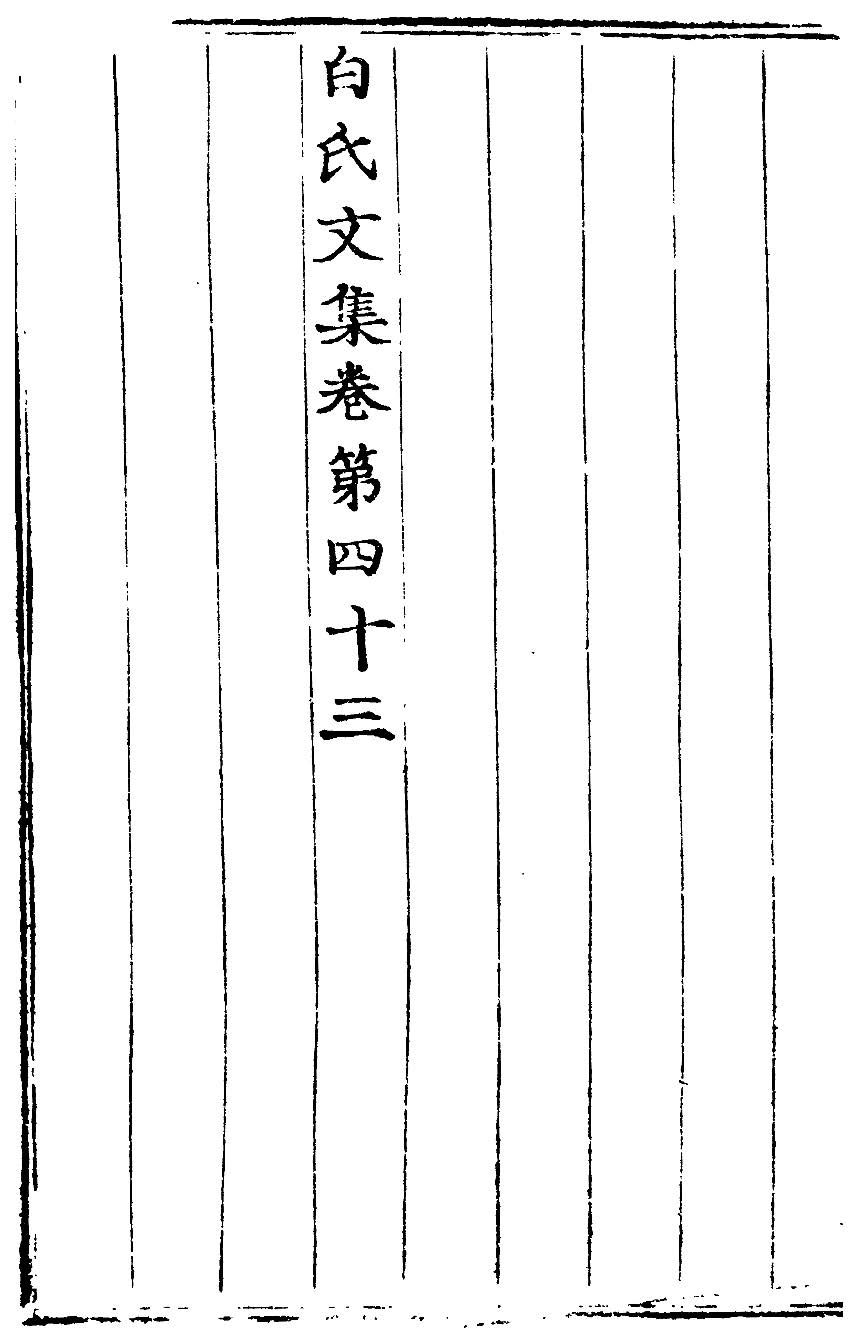 白氏文集卷第四十三